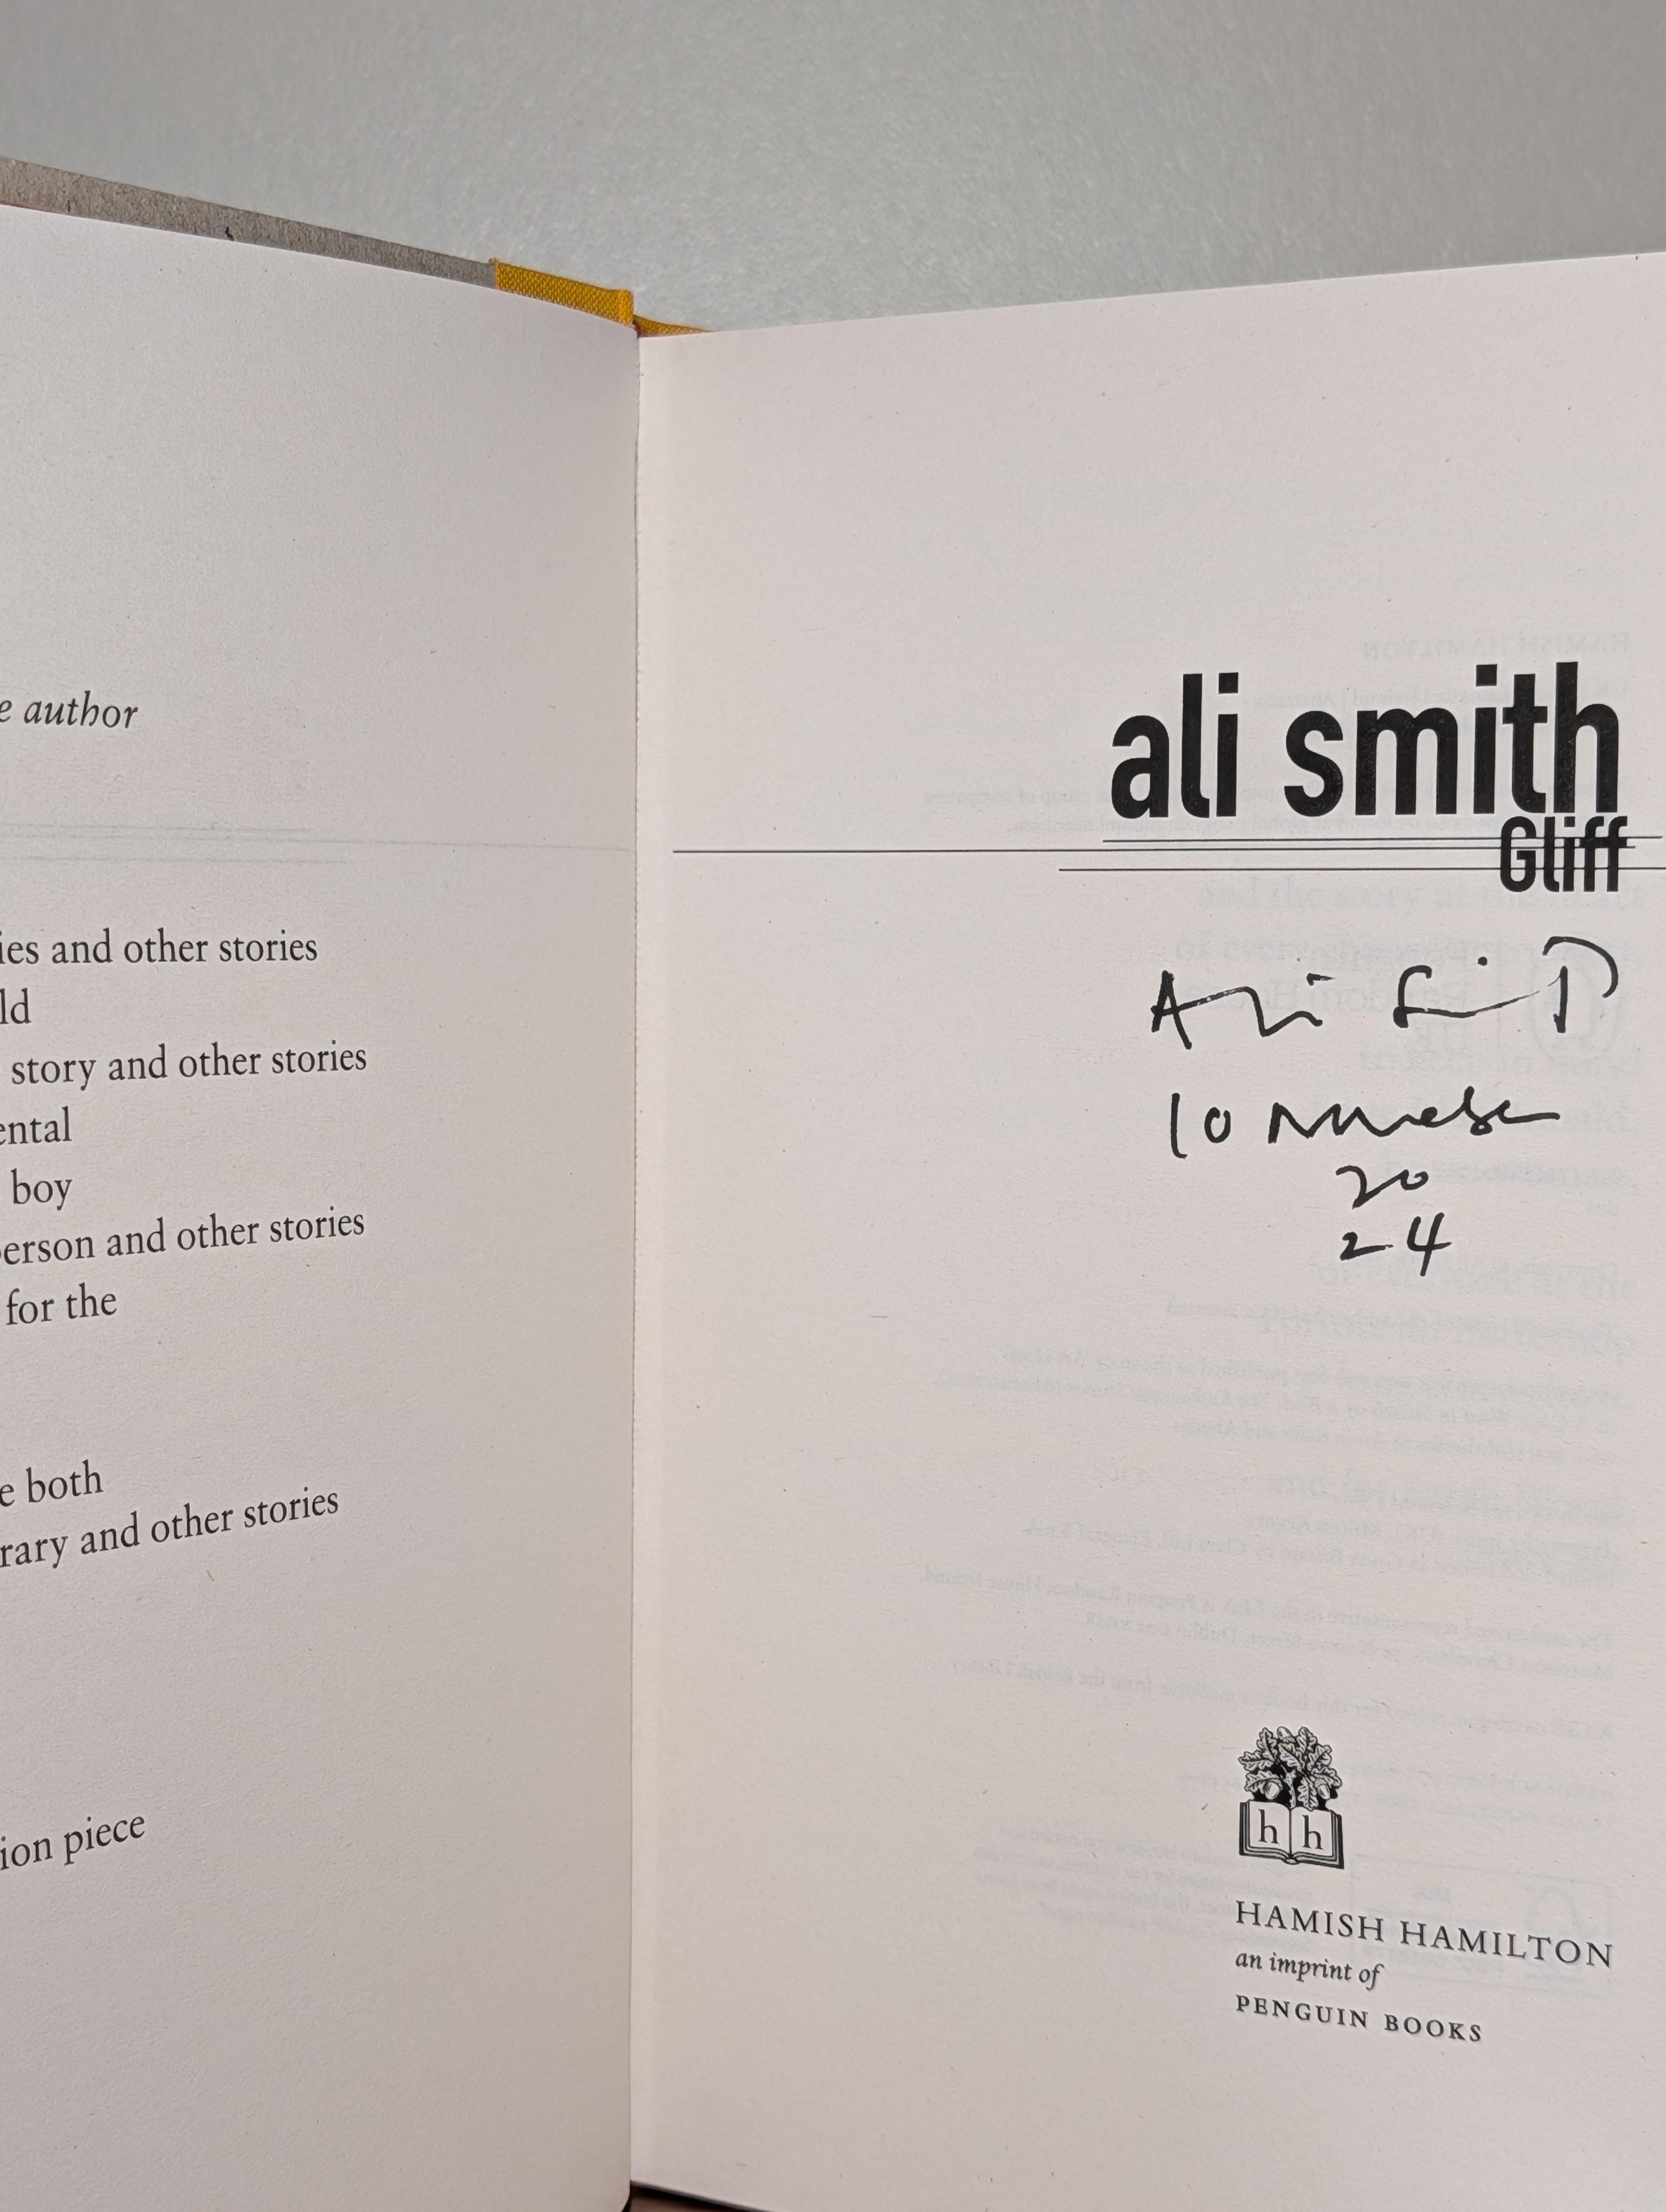 e author
ies and other stories
ld
story and other stories
ental
boy
erson and other stories
for the
e both
rary and other stories
ion piece
ali smith
Gliff
Ali Smith
10 November
20
24
h h
HAMISH HAMILTON
an imprint of
PENGUIN BOOKS